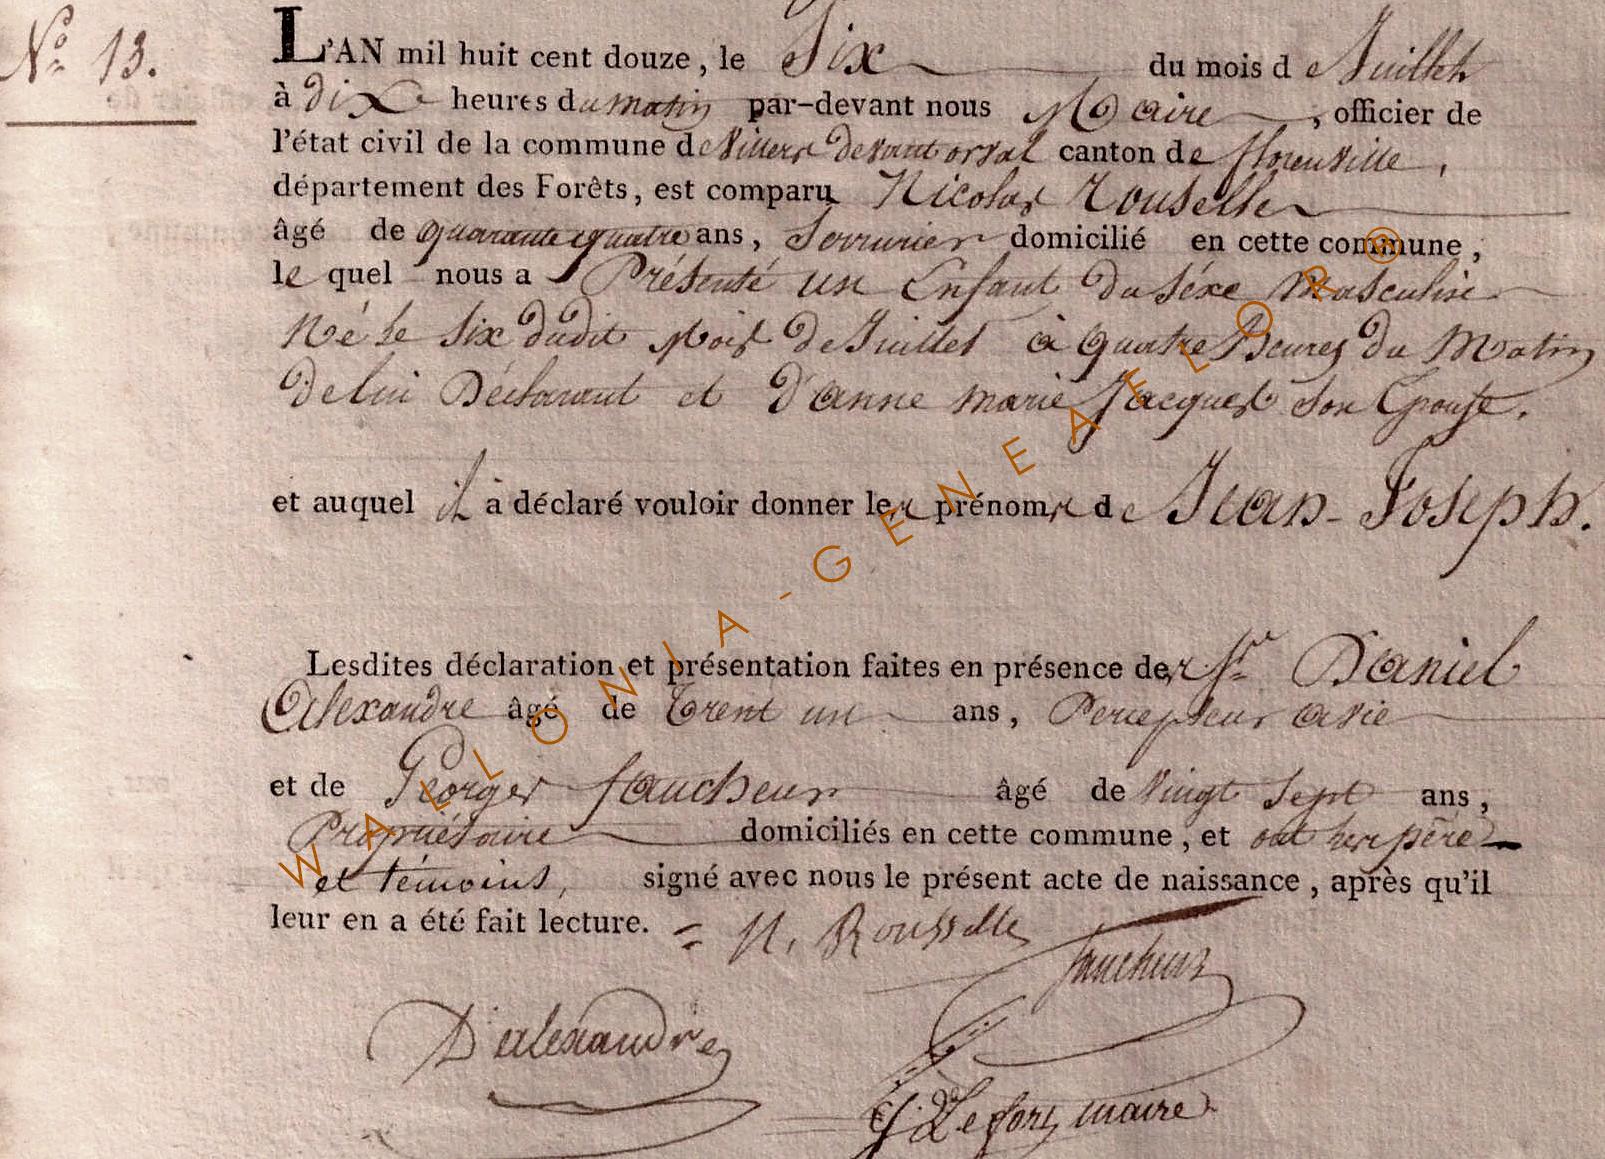 N.o 13.
L'AN mil huit cent douze, le Six du mois de Juillet
à dix heures du matin par-devant nous Maire, officier de
l'état civil de la commune de Villers devant orval canton de florenville,
département des Forêts, est comparu Nicolas Rousselle
âgé de quarante quatre ans, Serrurier domicilié en cette commune,
le quel nous a Présenté un Enfant du séxe Masculin
Né le Six dudit Mois de Juillet à quatre heures du Matin
de lui Déclarant et d'anne marie Jacques son Epouse.
et auquel il a déclaré vouloir donner les prénoms de Jean-Joseph.
Lesdites déclaration et présentation faites en présence des Sr Daniel
Alexandre âgé de Trent un ans, Percepteur
et de Georges faucheur âgé de vingt Sept ans,
Propriétaire domiciliés en cette commune, et ont les père
et témoins, signé avec nous le présent acte de naissance, après qu'il
leur en a été fait lecture. = N. Rousselle
faucheur
D alexandre
Lefort maire
WALLONIA-GENEAELOR®